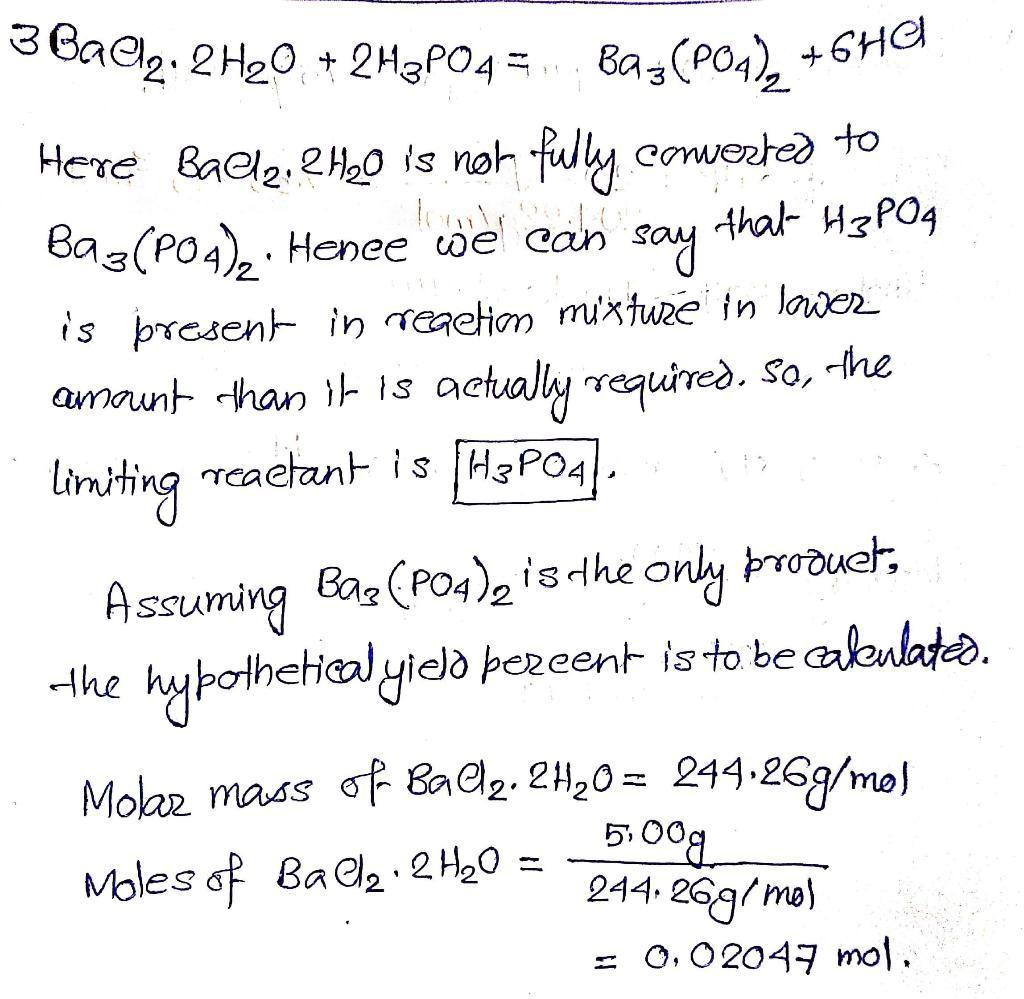 3 BaCl2. 2H2O + 2H3PO4 = Ba3(PO4)2 + 6HCl
Here BaCl2. 2H2O is not fully converted to
Ba3(PO4)2. Hence we can say that H3PO4
is present in reaction mixture in lower
amount than it is actually required. So, the
limiting reactant is H3PO4.
Assuming Ba3(PO4)2 is the only product,
the hypothetical yield percent is to be calculated.
Molar mass of BaCl2. 2H2O = 244.26g/mol
Moles of BaCl2. 2H2O = 5.00g / 244.26g/mol
= 0.02047 mol.